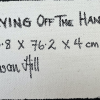 YING OFF THE HAN
.8 X 76.2 X 4 cm
san Hill